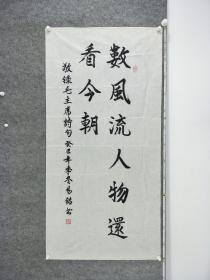 數風流人物還
看今朝
敬錄毛主席詩句癸巳年李冬易銘書